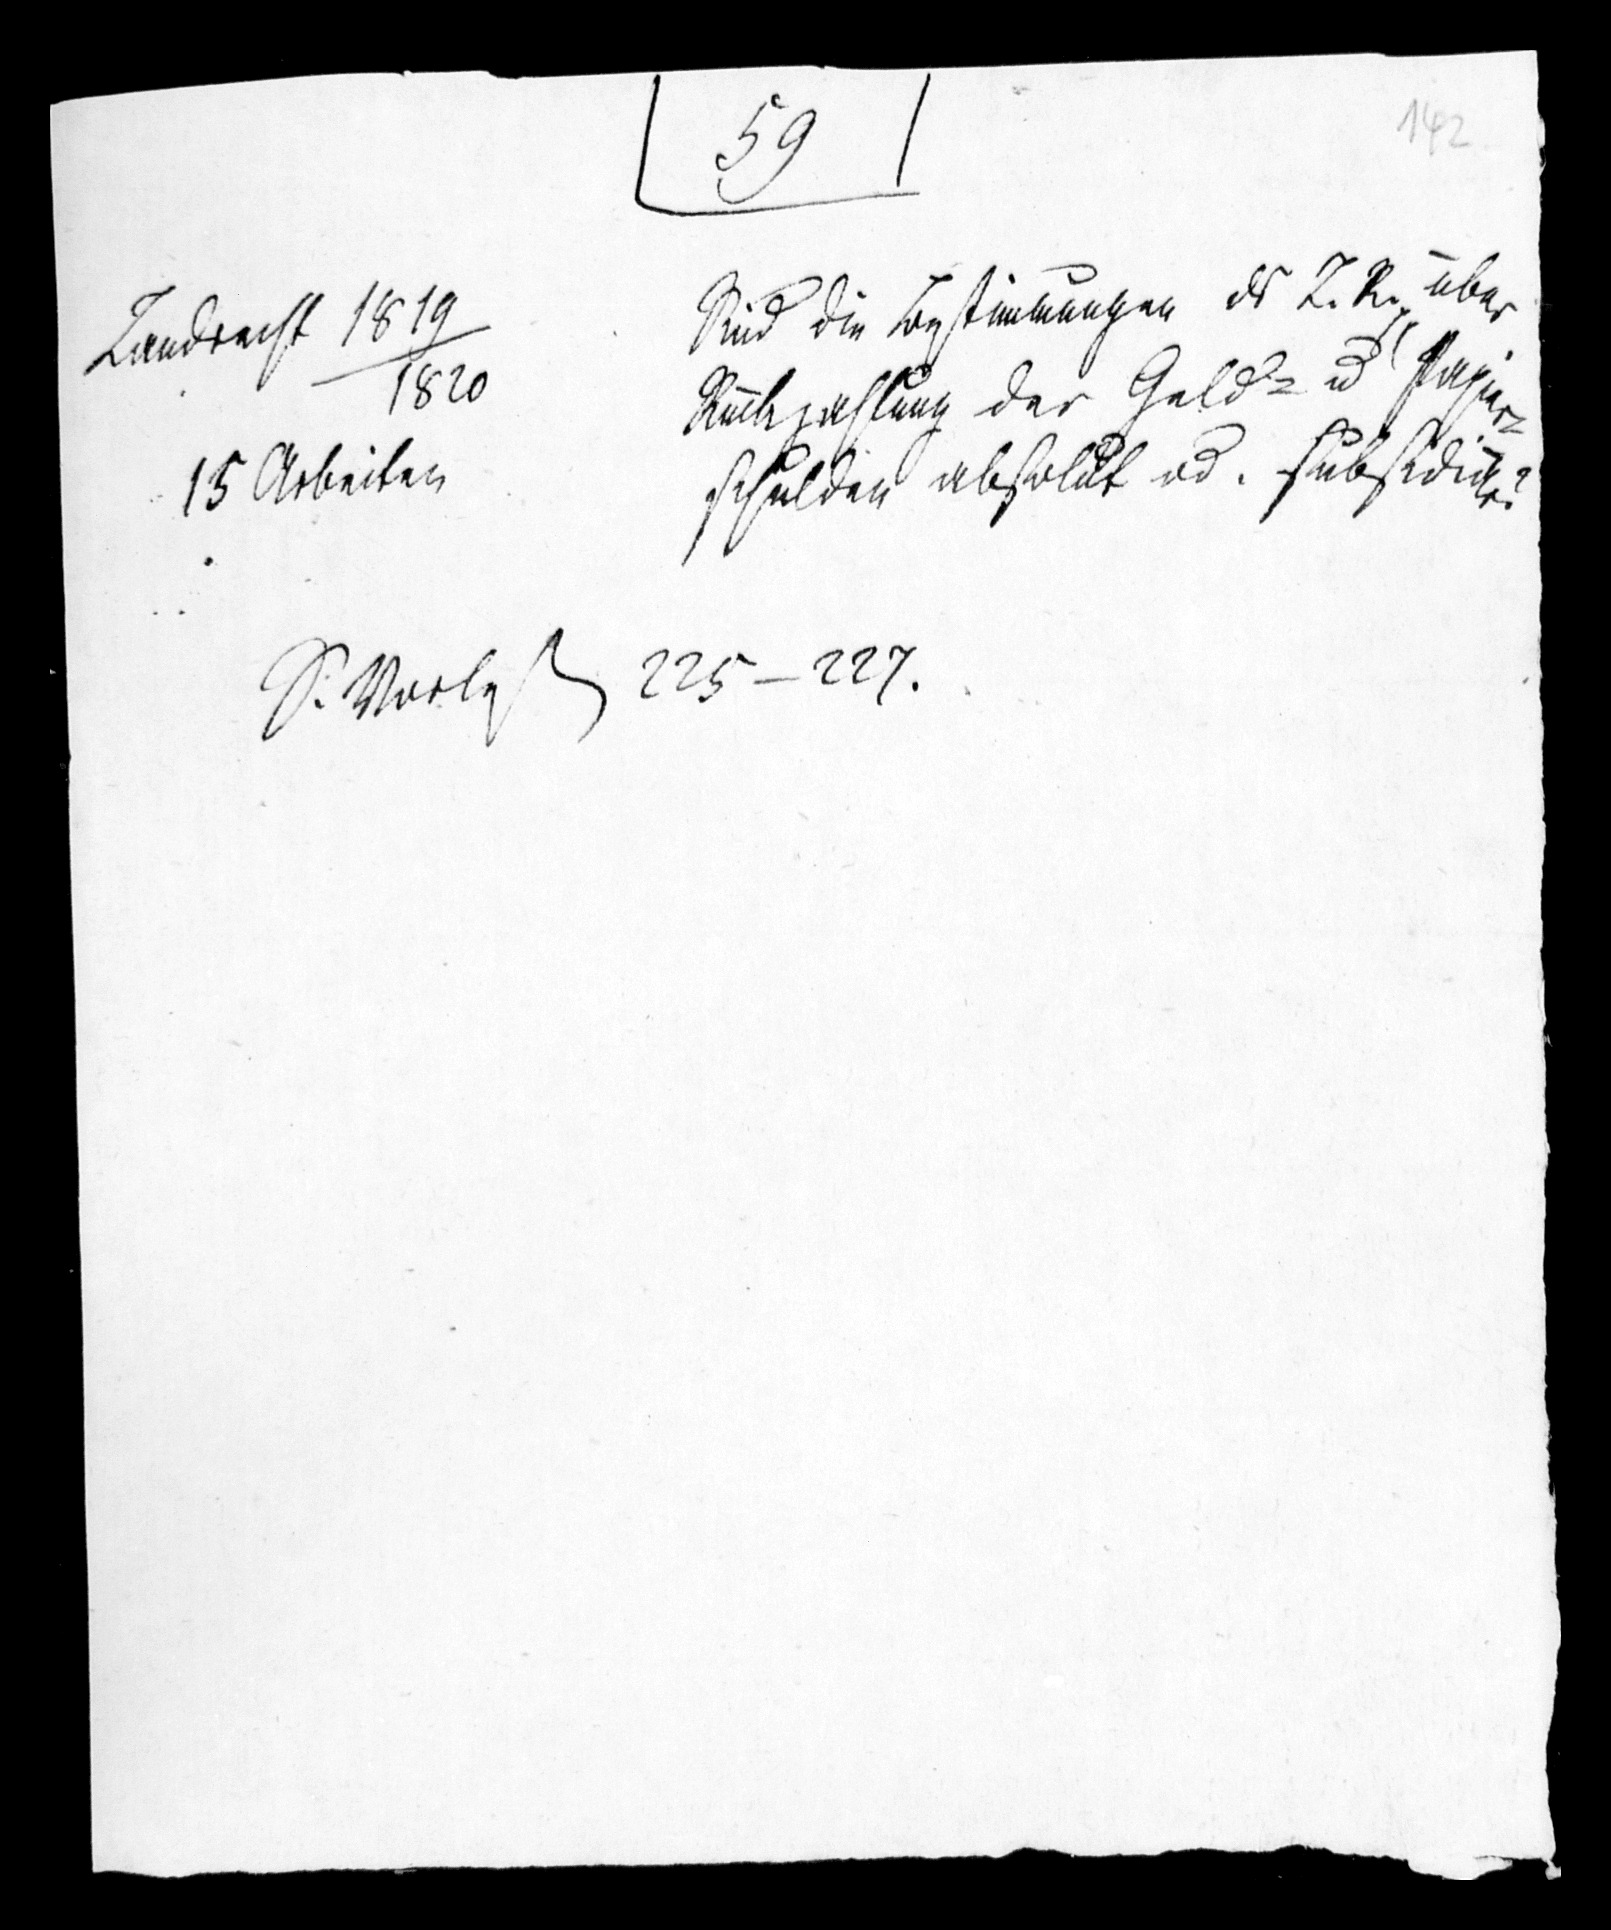 59
142
Landrecht 1819
1820
15 Arbeiten
Sind die Bestimmungen ds L. R. über
Rückzahlung der Geld= u Papier=
schulden absolut od. subsidiär?
S. Vorles 225–227.